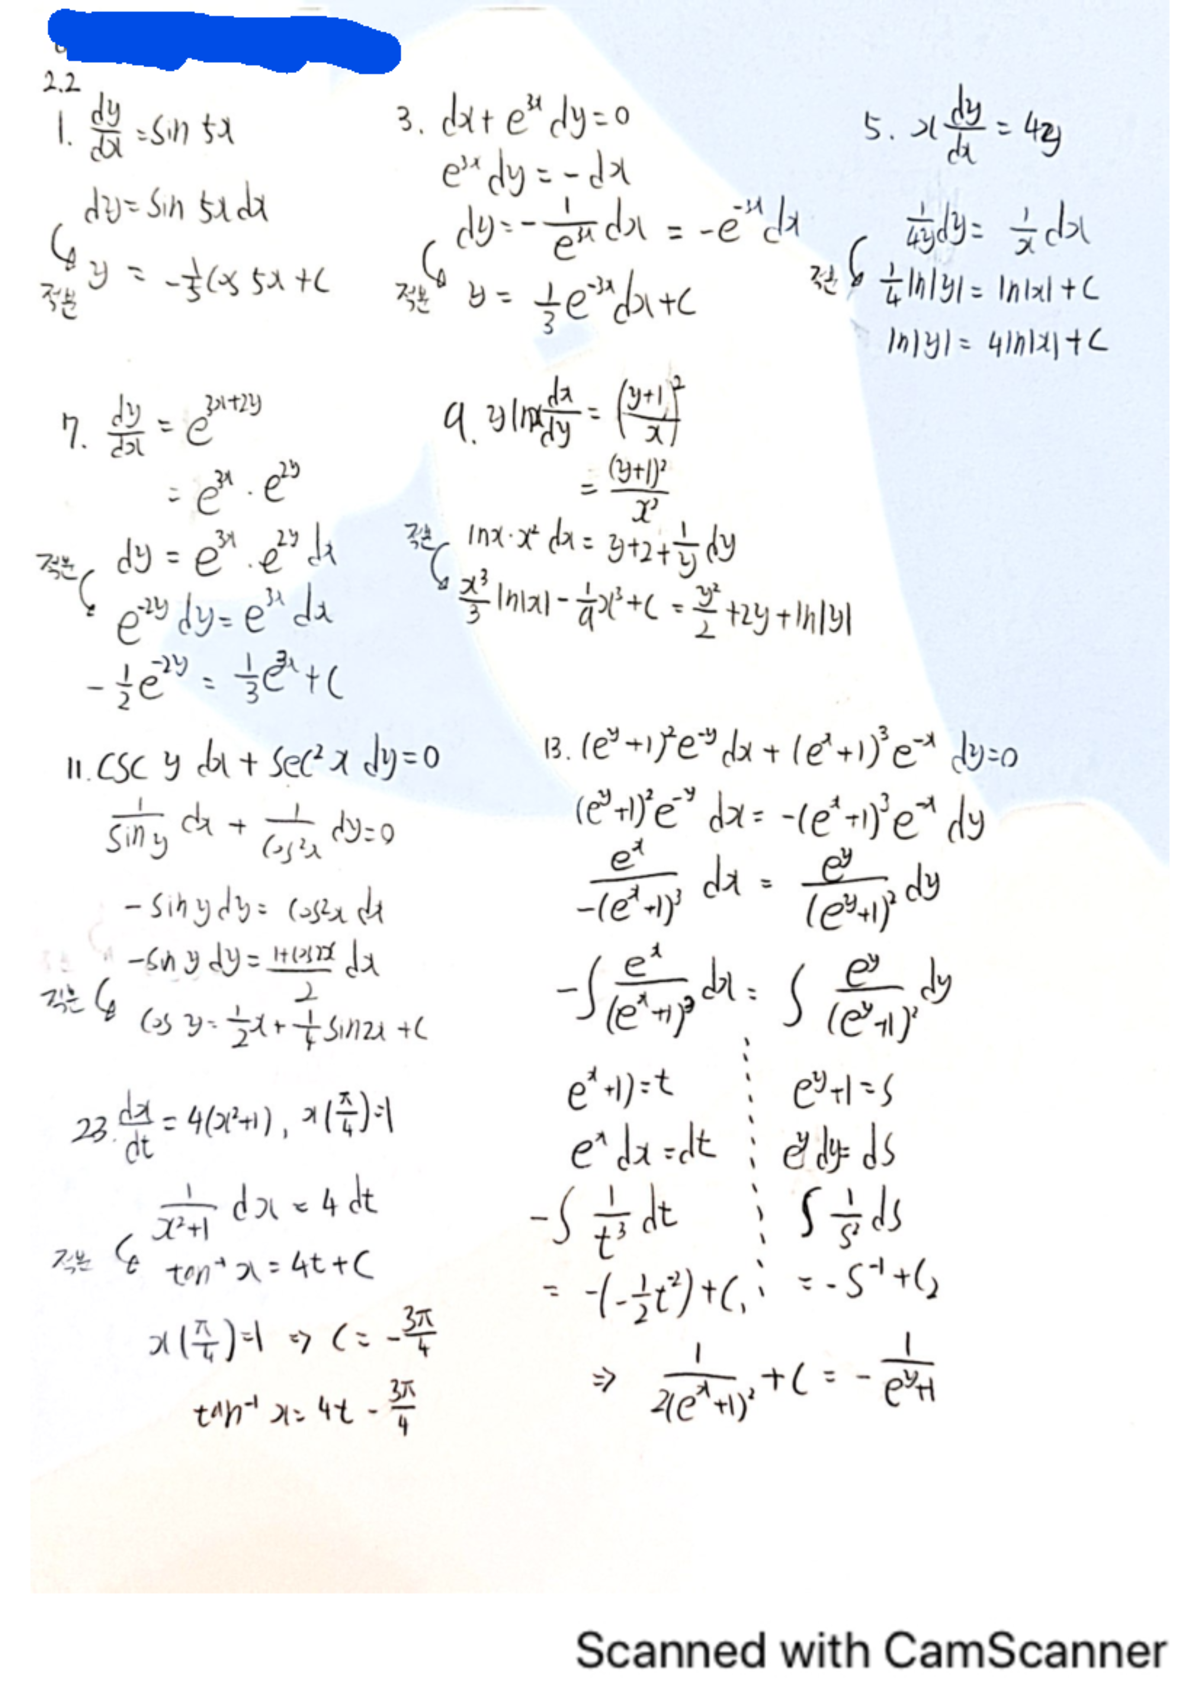 2.2
1. dy/dx = sin 5x
dy = sin 5x dx
적분 y = -1/5 cos 5x + C
3. dx + e^{3x} dy = 0
e^{3x} dy = -dx
dy = -1/e^{3x} dx = -e^{-3x} dx
적분 y = 1/3 e^{-3x} dx + C
5. x dy/dx = 4y
1/4y dy = 1/x dx
적분 1/4 ln|y| = ln|x| + C
ln|y| = 4ln|x| + C
7. dy/dx = e^{3x+2y}
= e^{3x} · e^{2y}
dy = e^{3x} · e^{2y} dx
적분 e^{-2y} dy = e^{3x} dx
-1/2 e^{-2y} = 1/3 e^{3x} + C
9. y lnx dx/dy = ((y+1)/x)^2
= (y+1)^2/x^2
lnx · x^2 dx = y+2+1/y dy
적분 x^3/3 ln|x| - 1/9 x^3 + C = y^2/2 + 2y + ln|y|
11. csc y dx + sec^2 x dy = 0
1/sin y dx + 1/cos^2 x dy = 0
- sin y dy = cos^2 x dx
-sin y dy = (1+cos2x)/2 dx
적분 cos y = 1/2 x + 1/4 sin2x + C
13. (e^y+1)^2 e^{-y} dx + (e^x+1)^3 e^{-x} dy = 0
(e^y+1)^2 e^{-y} dx = -(e^x+1)^3 e^{-x} dy
e^x/-(e^x+1)^3 dx = e^y/(e^y+1)^2 dy
-∫ e^x/(e^x+1)^3 dx = ∫ e^y/(e^y+1)^2 dy
e^x+1) = t e^y+1 = s
e^x dx = dt e^y dy = ds
-∫ 1/t^3 dt ∫ 1/s^2 ds
= -(-1/2 t^2) + C₁ = -s^{-1} + C₂
⇒ 1/2(e^x+1)^2 + C = - 1/e^y+1
23. dx/dt = 4(x^2+1), x(π/4)=1
1/x^2+1 dx = 4 dt
적분 tan^{-1} x = 4t + C
x(π/4)=1 ⇒ C = -3π/4
tan^{-1} x = 4t - 3π/4
Scanned with CamScanner